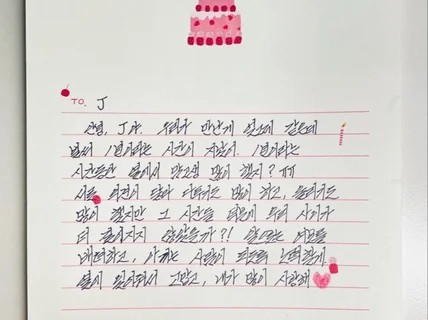 TO. J
안녕, J야. 우리가 만난게 엊그제 같은데
벌써 1년이라는 시간이 지났어. 1년이라는
시간동안 옆에서 맘고생 많이 했지? ㅠㅠ
서로 의견이 달라 다투기도 많이 하고,
많이 했지만 그 시간들 덕분에 우리 사이가
더 돈독해지지 않았을까?! 앞으로는 서로를
배려하고, 아끼는 사람이 되도록 노력할게.
옆에 있어줘서 고맙고, 내가 많이 사랑해